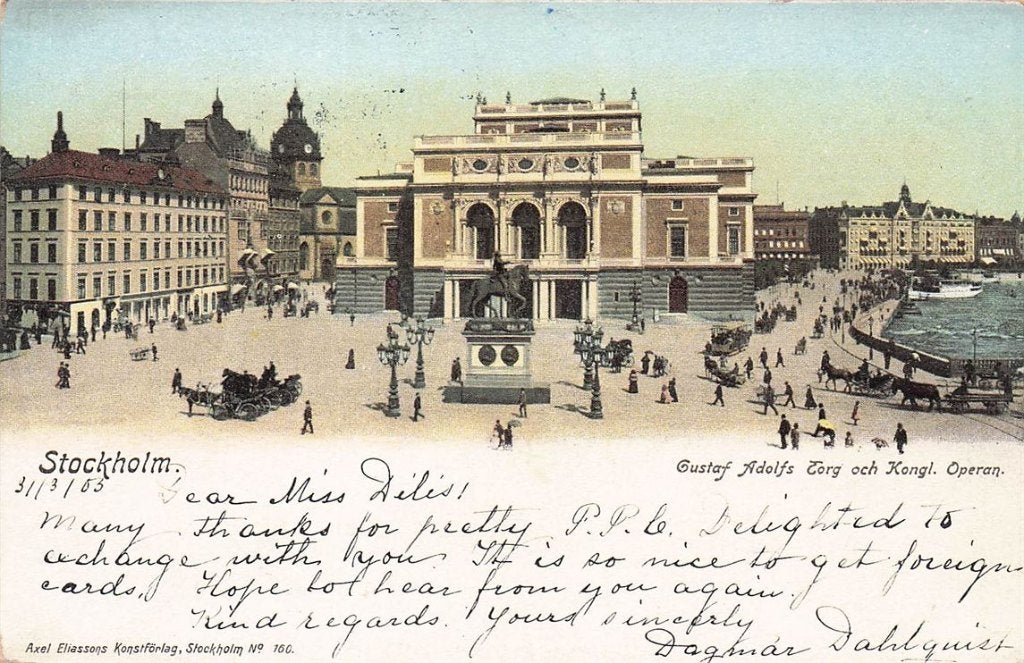 Stockholm.
Gustaf Adolfs Torg och Kongl. Operan.
31/3/05
Dear Miss Délis!
Many thanks for pretty P.P.C. Delighted to
exchange with you. It is so nice to get foreign
cards, Hope to hear from you again.
Kind regards. Yours sincerly
Dagmar Dahlquist
Axel Eliassons Konstförlag, Stockholm No 160.